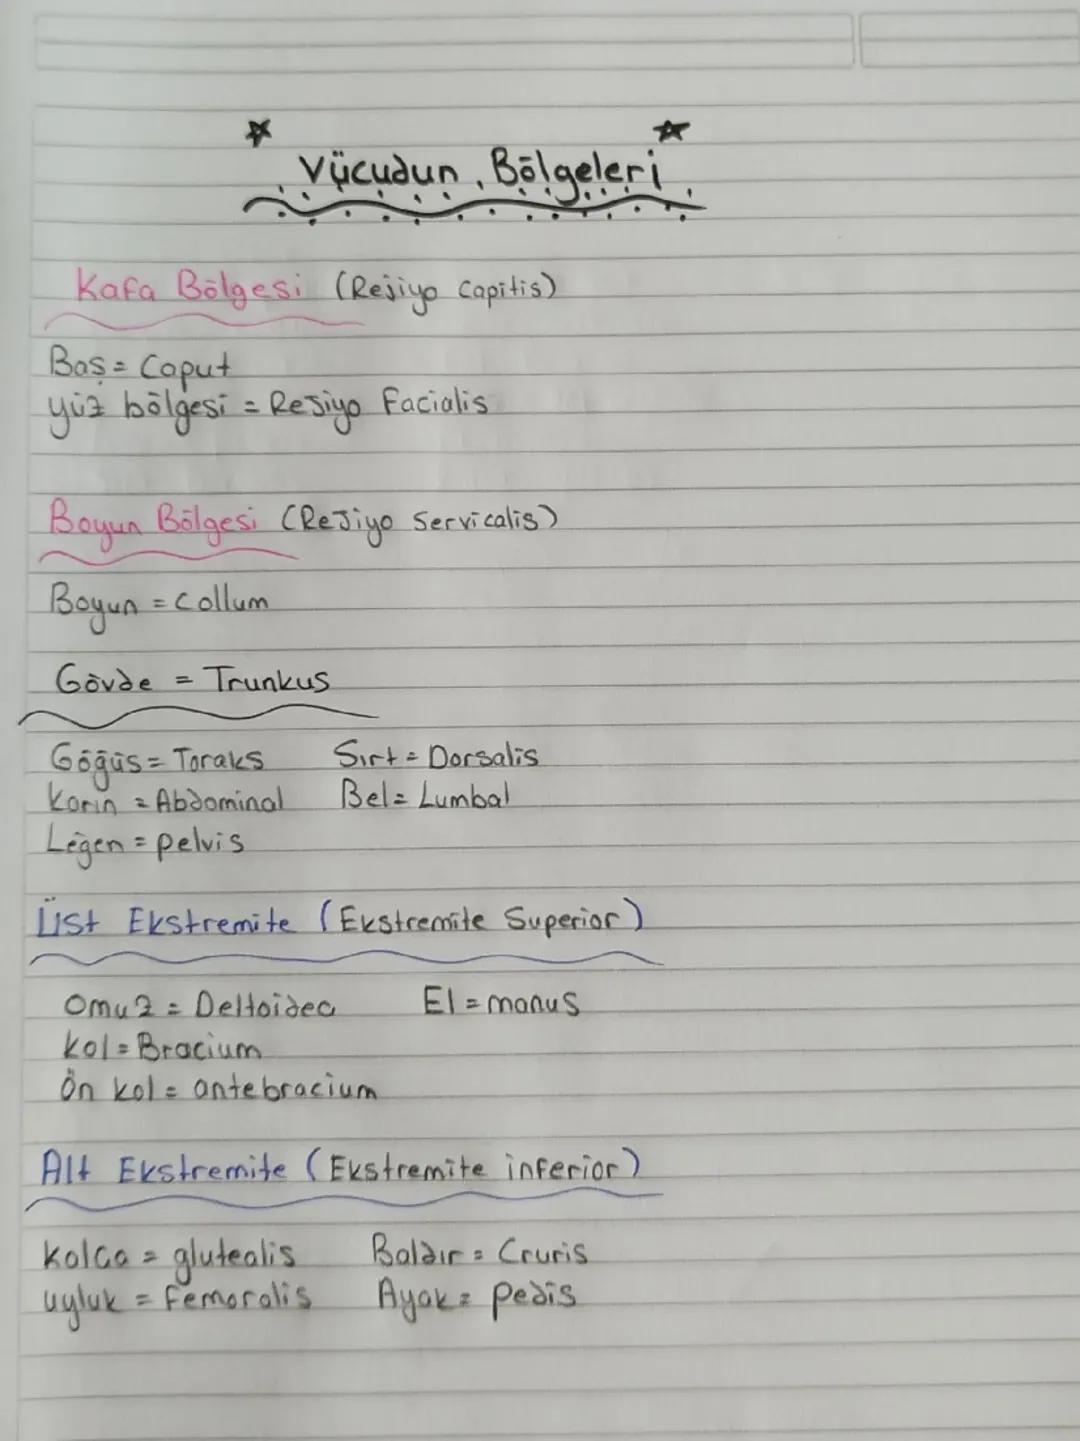 Vücudun Bölgeleri
Kafa Bölgesi (Rejiyo Capitis)
Baş = Caput
yüz bölgesi = Rejiyo Facialis
Boyun Bölgesi (Rejiyo Servicalis)
Boyun = Collum
Gövde = Trunkus
Göğüs = Toraks Sırt = Dorsalis
Karın = Abdominal Bel = Lumbal
Leğen = pelvis
Üst Ekstremite (Ekstremite Superior)
Omuz = Deltoidea El = manus
Kol = Bracium
Ön kol = antebracium
Alt Ekstremite (Ekstremite inferior)
Kalça = glutealis Baldır = Cruris
uyluk = femoralis Ayak = pedis